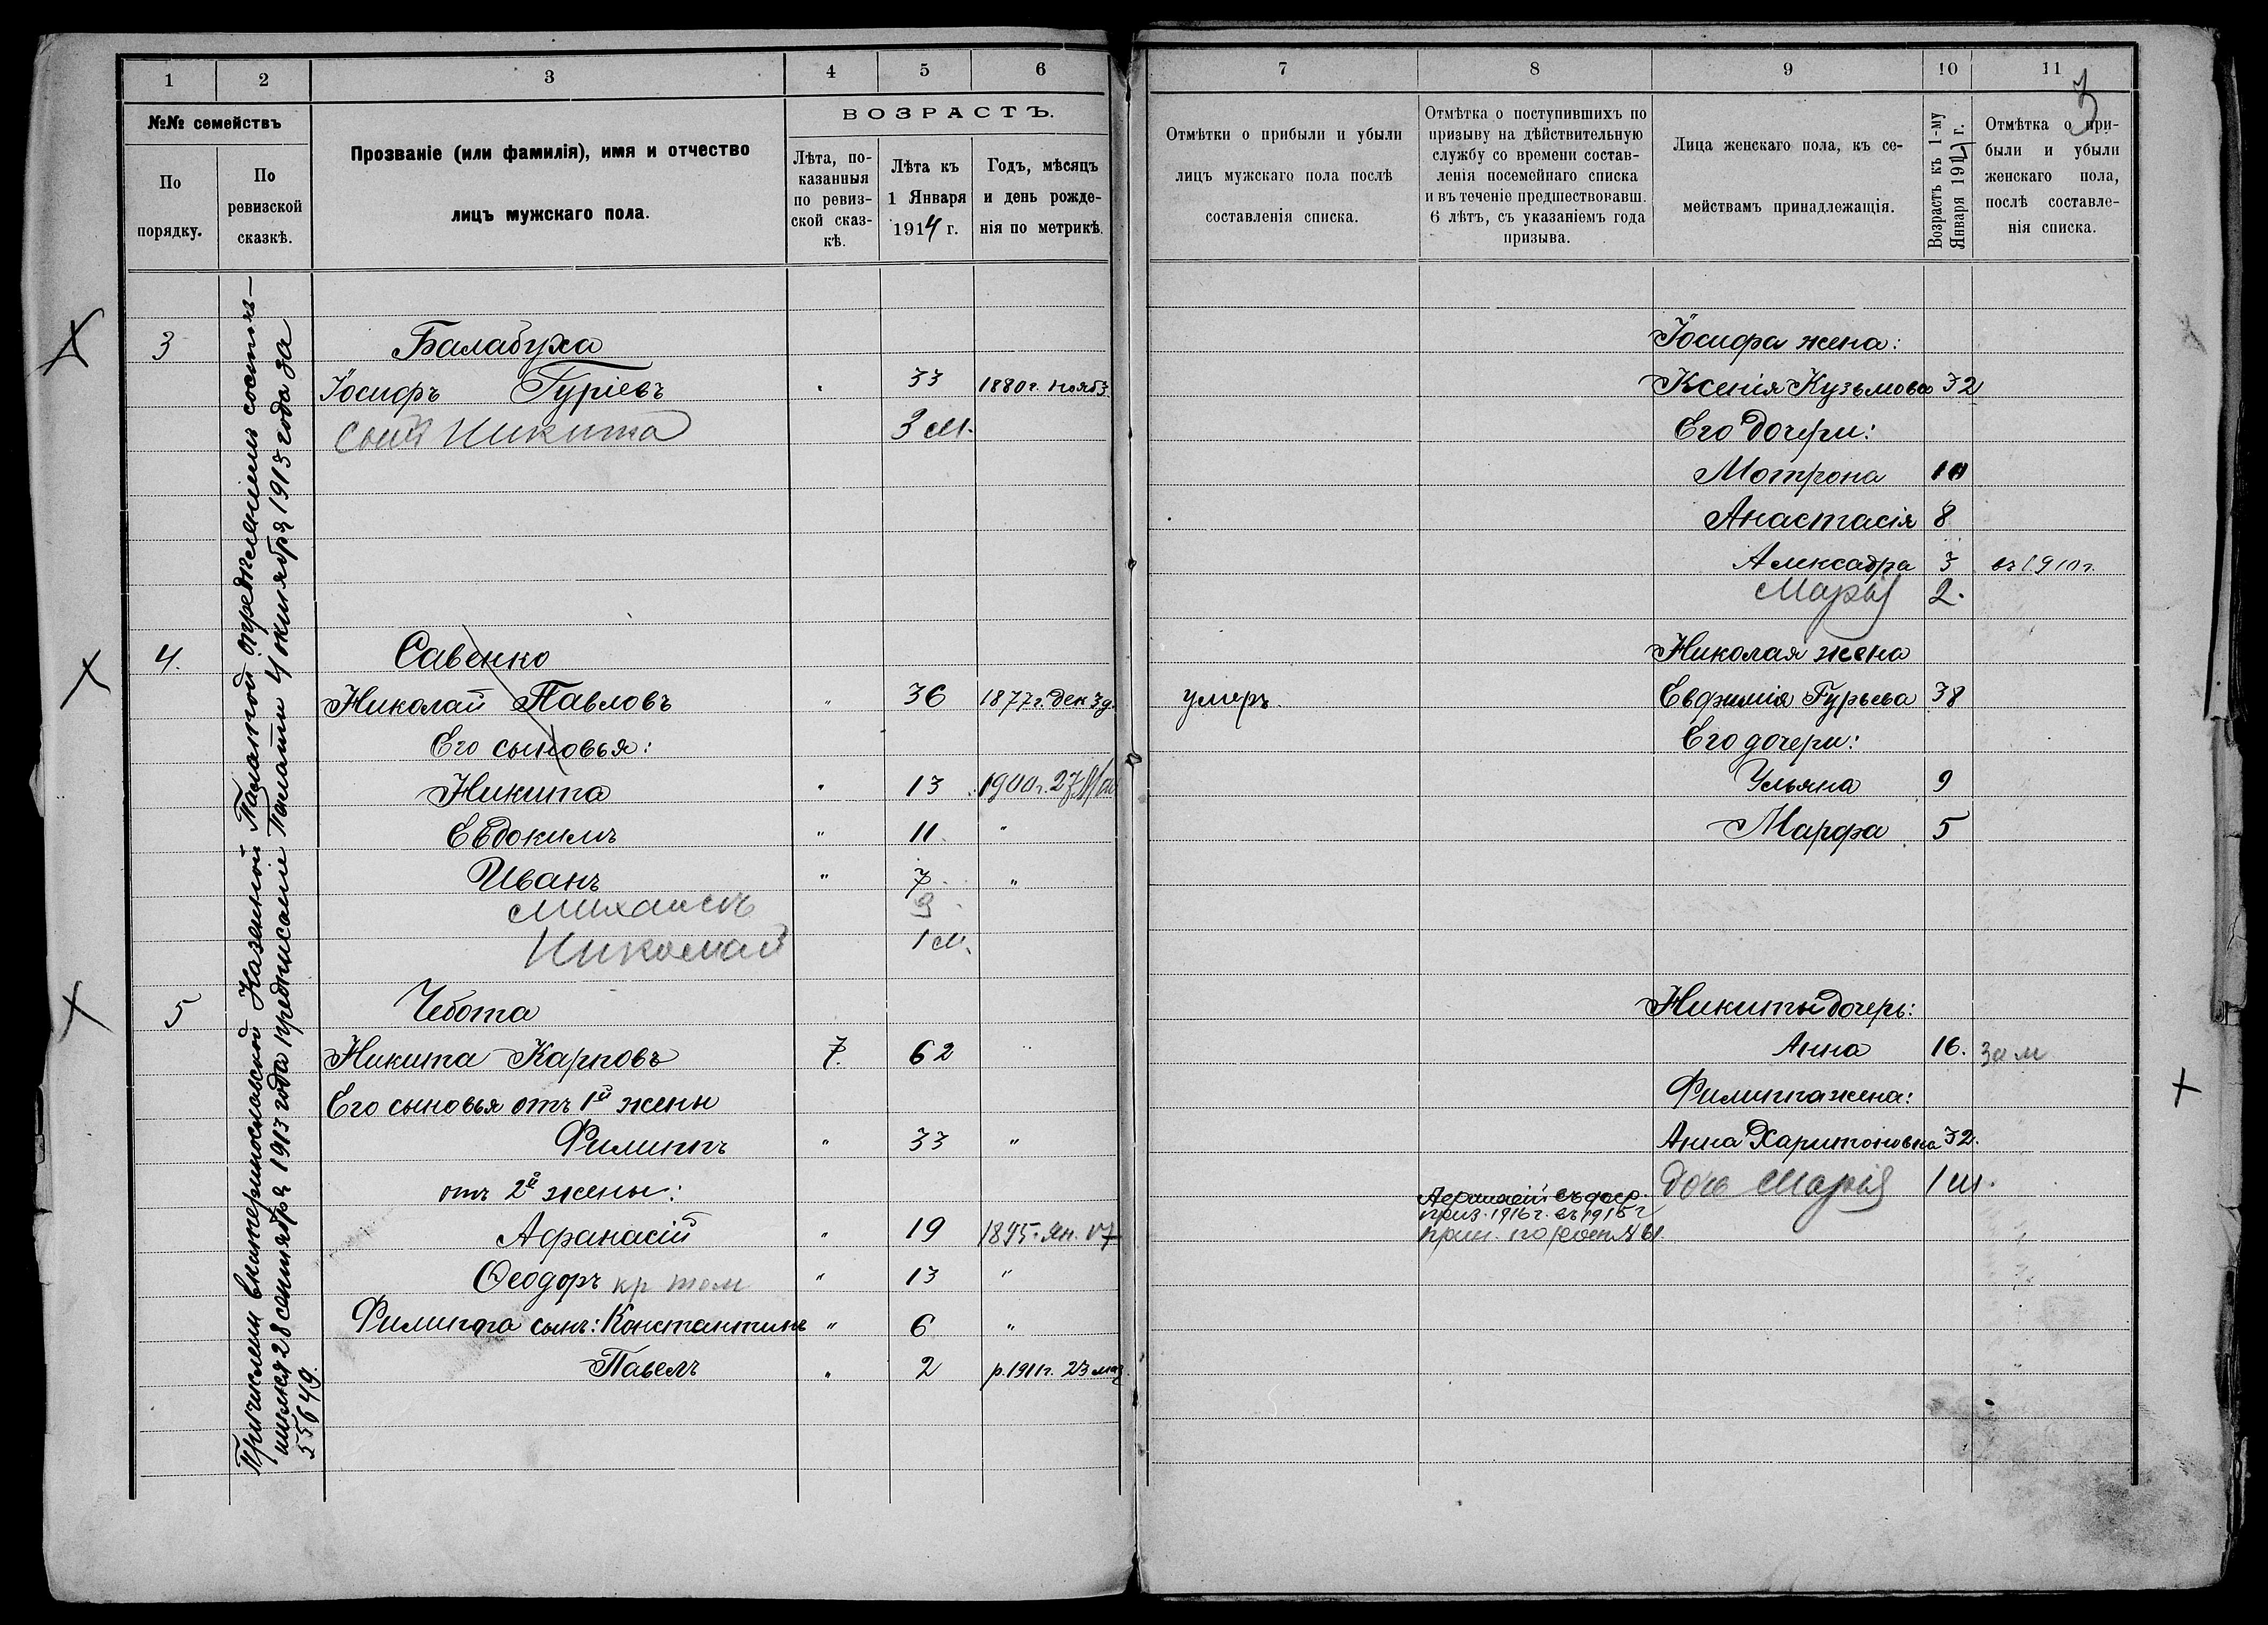 1 2 3 4 5 6
№№ семействъ
По порядку.
По ревизской сказкѣ.
Прозваніе (или фамилія), имя и отчество
лицъ мужскаго пола.
ВОЗРАСТЪ.
Лѣта, по-
казанныя
по ревиз-
ской сказ-
кѣ.
Лѣта къ
1 Января
1914 г.
Годъ, мѣсяцъ
и день рожде-
нія по метрикѣ.
Причислены Екатеринославской Казенной Палатой опредѣленіемъ состояв-
шимся 28 сентября 1913 года предписаніе Палаты 4 октября 1913 года за
55649.
3 Балабуха
Іосифъ Гуріевъ 33 1880 г. нояб 3
Сынъ Никита 3 м.
4. Савенко
Николай Павловъ " 36 1877 г. дек 3 д.
Его сыновья:
Никита " 13 1900 г. 27 Мая
Евдокимъ " 11 "
Иванъ " 7 "
Михаилъ 3
Николай 1 м.
5 Чебота
Никита Карповъ 7. 62 "
Его сыновья отъ 1й жены
Филиппъ " 33 "
отъ 2й жены:
Афанасій " 19 1895 г. Ян. 17
Ѳеодоръ " 13 "
Филиппа сынъ: Константинъ " 6 "
Павелъ " 2 р. 1911 г. 23 мая
7 8 9 10 11
3
Отмѣтки о прибыли и убыли
лицъ мужскаго пола послѣ
составленія списка.
Отмѣтка о поступившихъ по
призыву на дѣйствительную
службу со времени состав-
ленія посемейнаго списка
и въ теченіе предшествовавш.
6 лѣтъ, съ указаніемъ года
призыва.
Лица женскаго пола, къ се-
мействамъ принадлежащія.
Возрастъ къ 1-му
Января 1914 г.
Отмѣтка о при-
были и убыли
женскаго пола,
послѣ составле-
нія списка.
Іосифа жена:
Ксенія Кузьмова 32
Его дочери:
Мотрона 10
Анастасія 8
Алексадра 3 въ 1910 г.
Марія 2.
Николая жена
умеръ. Евфимія Гурьева 38
Его дочери:
Ульяна 9
Марфа 5
Никиты дочерь:
Анна 16. зам
Филиппа жена:
Анна Харитоновна 32.
дочь Марія 1 м.
Афанасій съ доср.
приз. 1916 г. въ 1915 г